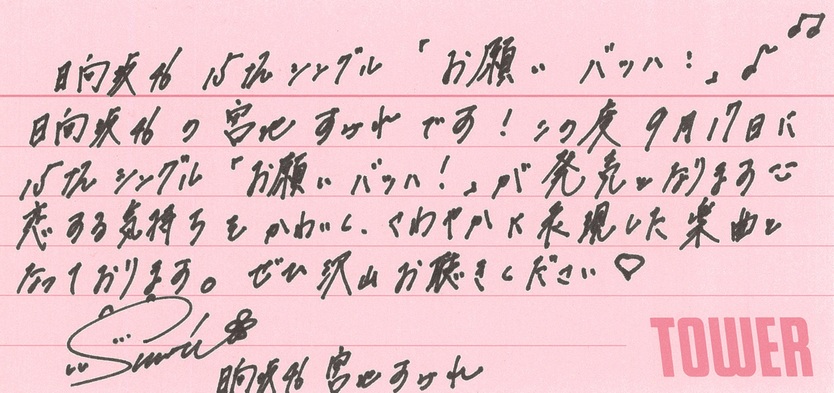 日向坂46 15th シングル 「お願いバッハ!」♪
日向坂46の宮地すみれです!この度9月17日に
15th シングル「お願いバッハ!」が発売となります
恋する気持ちをかわいく、さわやかに表現した楽曲と
なっております。ぜひ沢山お聴きください♡
Sumire
日向坂46 宮地すみれ
TOWER